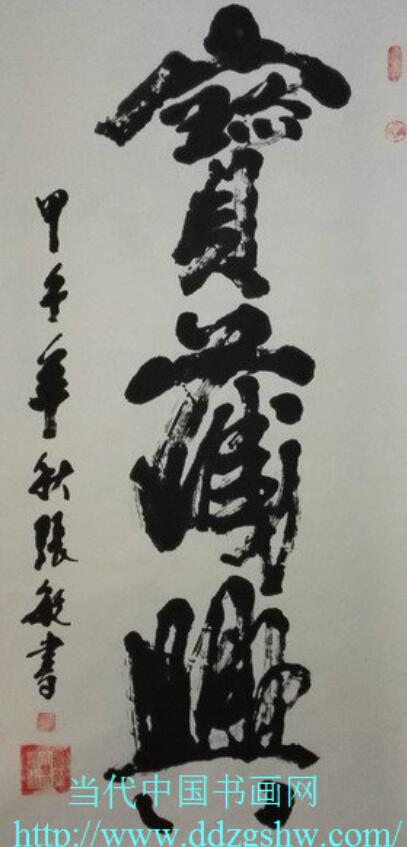 寶藏興
甲午年秋張敏書
当代中国书画网
http://www.ddzgshw.com/